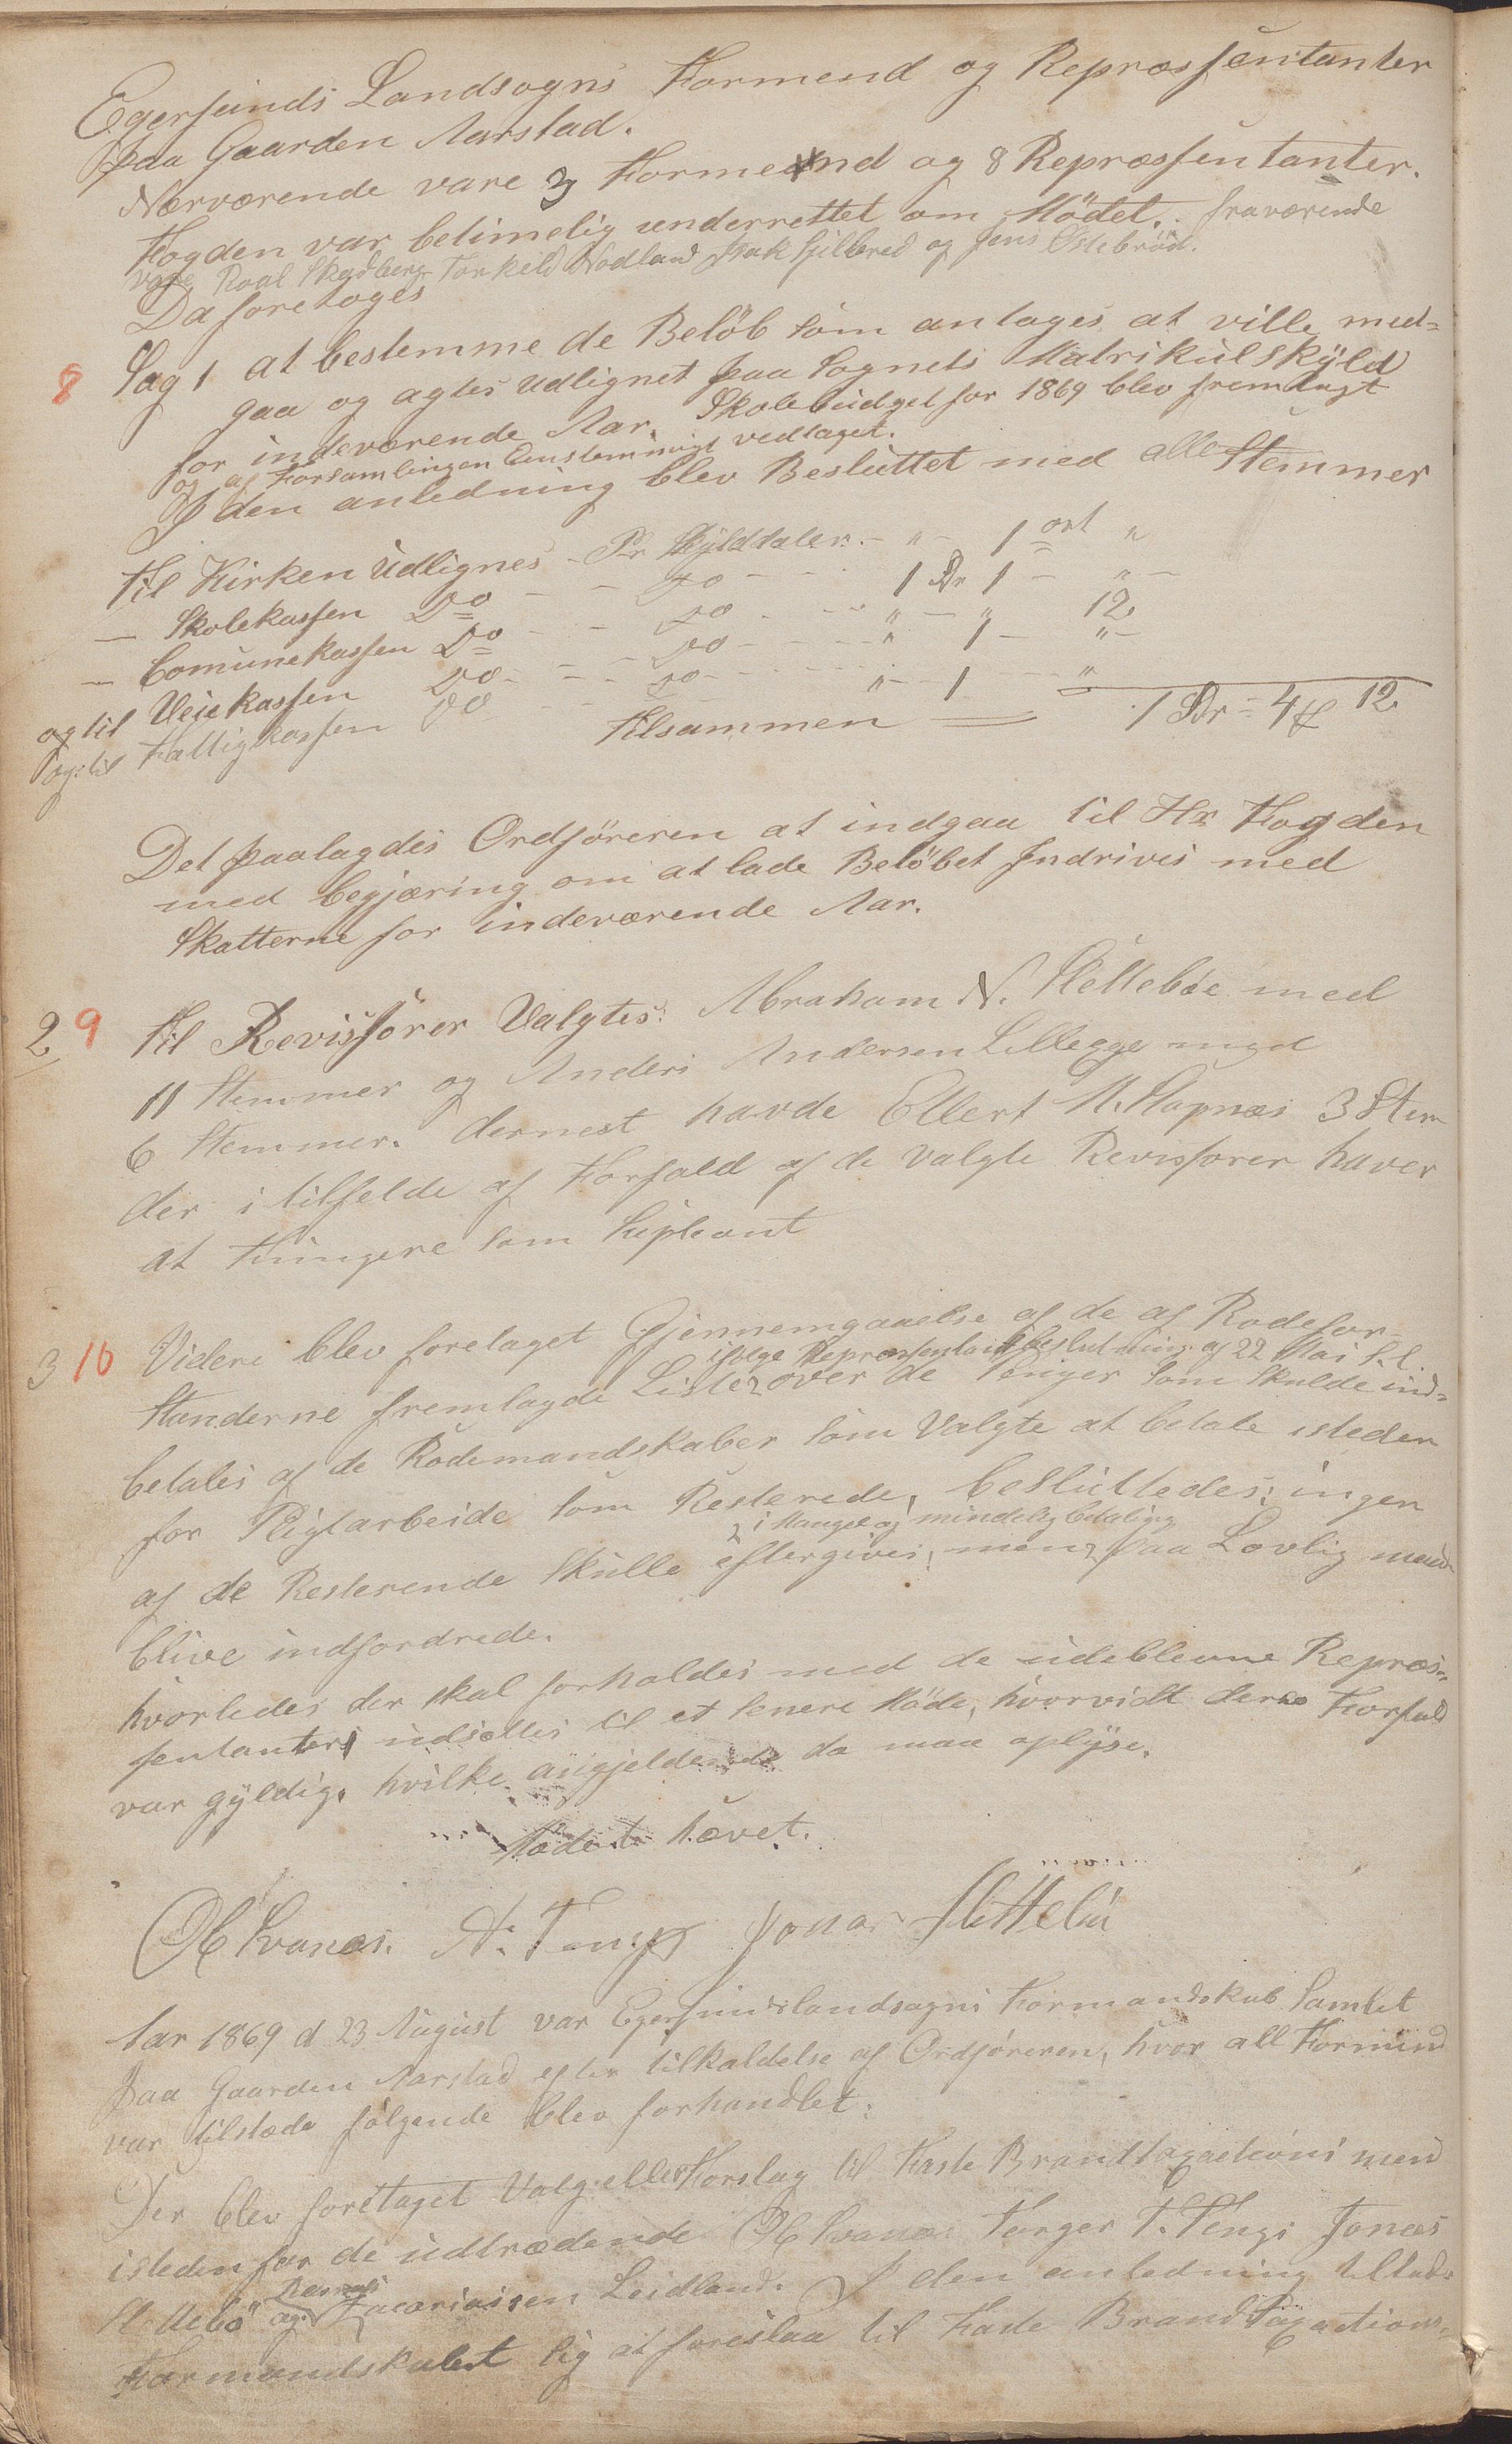 Egersunds Landsogns Formend og Repræssentanter
paa Gaarden Aarstad.
Nærværende vare 3 Formend og 8 Repræssentanter.
Fogden var betimelig underrettet om Mödet. fraværende
vare Roal Skadberg Torkild Nodland Isak Gjilbred og Jens Ostebröd.
Da foretoges
8 Sag 1 at bestemme de Belöb som antages at ville med-
gaa og agtes udlignet paa Sognets Matrikulskÿld
for indeværende Aar. Skolebudget for 1869 blev fremlagt
og af Forsamlingen Eenstemmigt vedtaget.
I den anledning blev Besluttet med alle Stemmer
til Kirken Udlignes - Pr Skÿlddaler - " - 1 ort "
— Skolekassen Do - - do - - 1 Dr 1 - " -
— Comunekassen Do - - do - - " - " 12
og til Veiekassen do - - do - - " 1 - " -
og til Fattigkassen do - - do - - " - 1 - "
tilsammen — 1 Dr - 4 ₰ 12
Det paalagdes Ordföreren at indgaa til Hr Fogden
med begjæring om at lade Belöbet Indrives med
Skatterne for indeværende Aar.
2 9 til Revissorer Valgtes: Abraham N. Slettebøe med
11 Stemmer og Anders Andersen Lillegge med
6 Stemmer. dernest havde Ellert M. Stapnæs 3 Stem
der i tilfelde af Forfald af de valgte Revissorer haver
at Fungere som Supleant
3 10 Videre blev foretaget Gjennemgaaelse af de af Rodefor-
ifølge Repræssentantbeslutning af 22 Mai d.A.
standerne fremlagde Lister over de Penger som Skulde ind-
betales af de Rodemandskaber som Valgte at betale isteden
for Pligtarbeide som Resterede, besluttedes: ingen
i Mangel af mindelig betaling
af de Resterende Skulle eftergives, men paa Lovlig maade
blive indfordrede.
hvorledes der skal forholdes med de udeblevne Repræs-
sentanter udsettes til et senere Möde, hvorvidt deres Forfald
var gÿldig, hvilke angjeldende da maa oplÿse.
Mödet hævet.
O H Svanæs. A. Tengs Jonas Slettebö
Aar 1869 d 23 August var Egersundslandsogns Formandskab Samlet
paa Gaarden Aarstad efter tilkaldelse af Ordföreren, hvor all Formend
var tilstede fölgende blev forhandlet:
Der blev foretaget Valg eller Forslag til Faste Brandtaxactions mend
isteden for de udtrædende O H Svanæs Torger T. Tengs Jonas
Slettebö og Rasmus Zacariasen Leidland. I den anledning
Formandskabet sig at foreslaa til Faste BrandTaxactions-